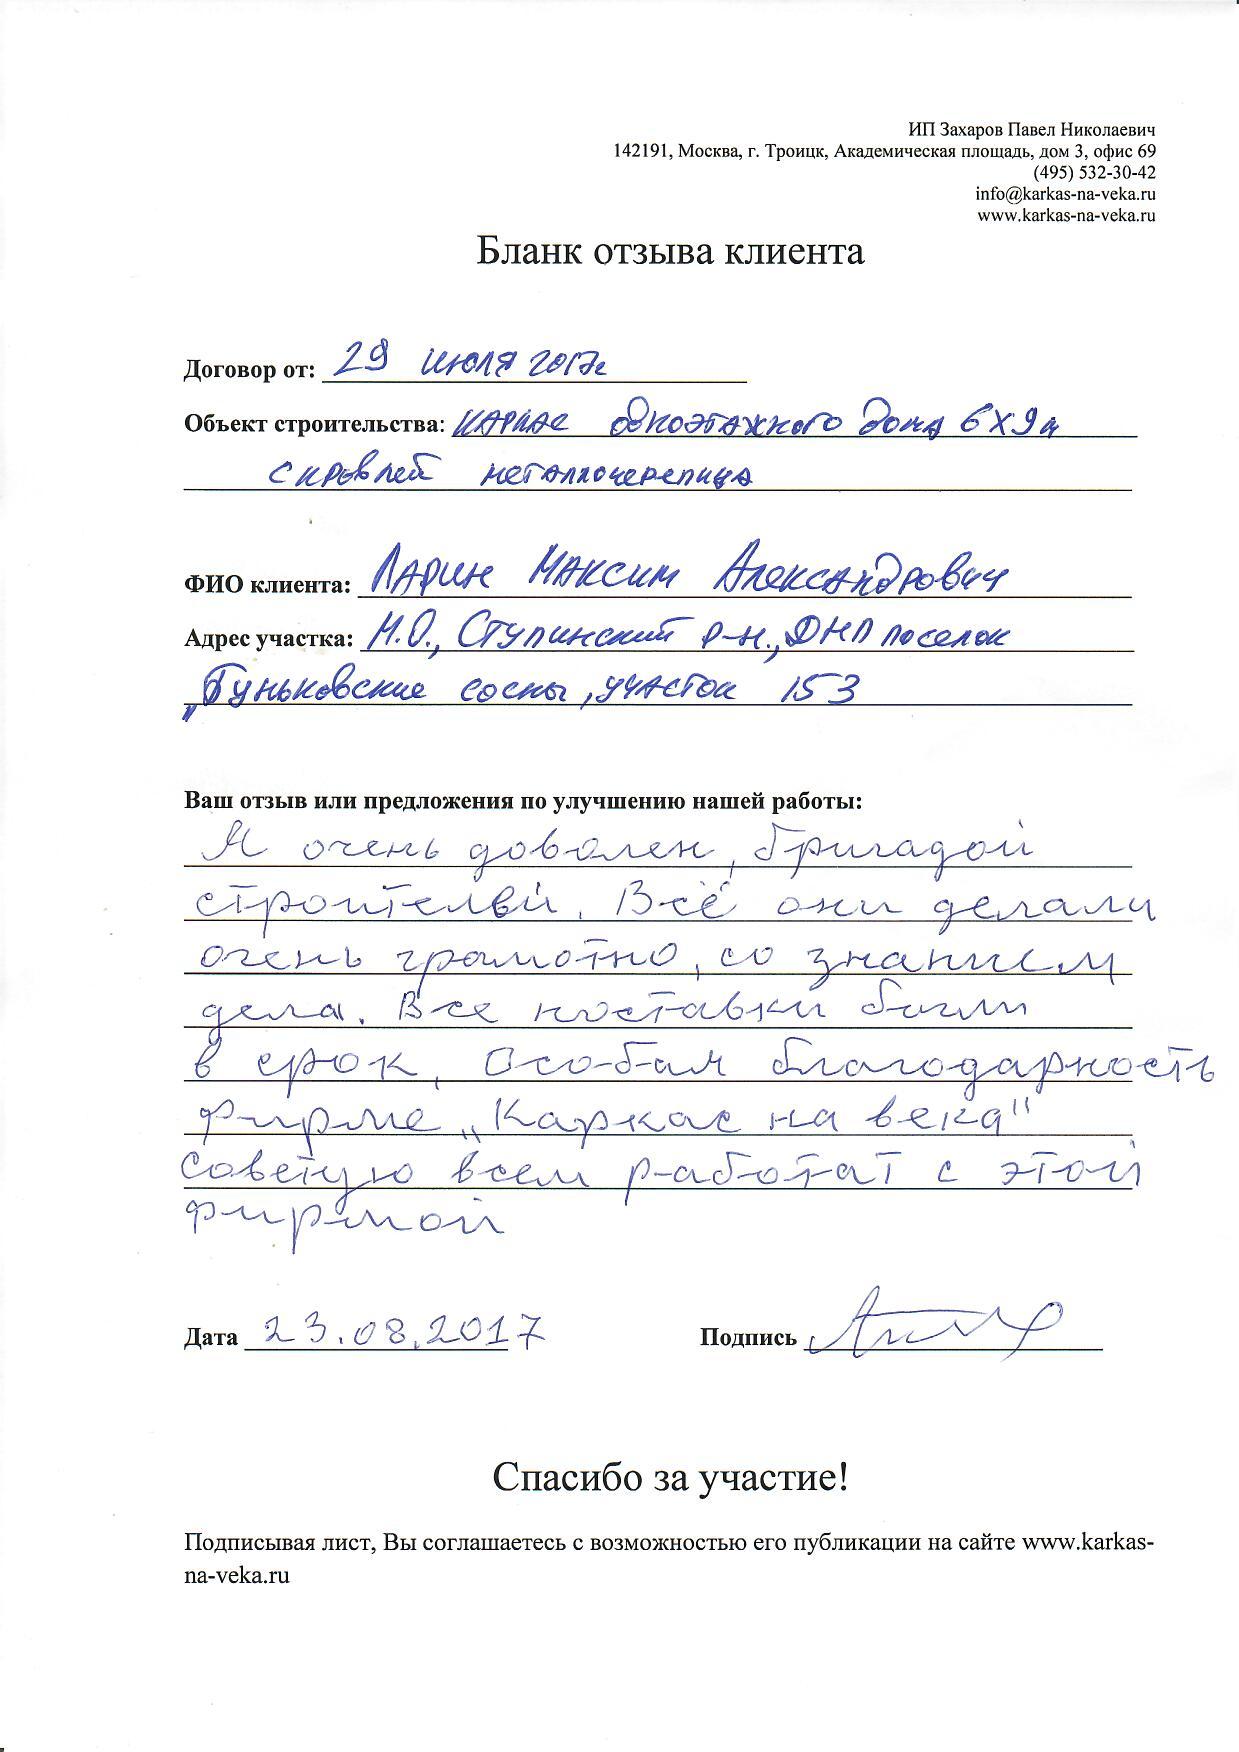 ИП Захаров Павел Николаевич
142191, Москва, г. Троицк, Академическая площадь, дом 3, офис 69
(495) 532-30-42
info@karkas-na-veka.ru
www.karkas-na-veka.ru
Бланк отзыва клиента
Договор от: 29 июля 2017г
Объект строительства: каркас одноэтажного дома 6х9м
с кровлей металлочерепица
ФИО клиента: Ларин Максим Александрович
Адрес участка: М.О., Ступинский р-н., ДНП поселок
„Гуньковские сосны, участок 153
Ваш отзыв или предложения по улучшению нашей работы:
Я очень доволен, бригадой
строителей. Всё они делали
очень грамотно, со знанием
дела. Все поставки были
в срок. Особая благодарность
фирме „Каркас на века"
Советую всем работат с этой
фирмой
Дата 23.08.2017 Подпись
Спасибо за участие!
Подписывая лист, Вы соглашаетесь с возможностью его публикации на сайте www.karkas-
na-veka.ru